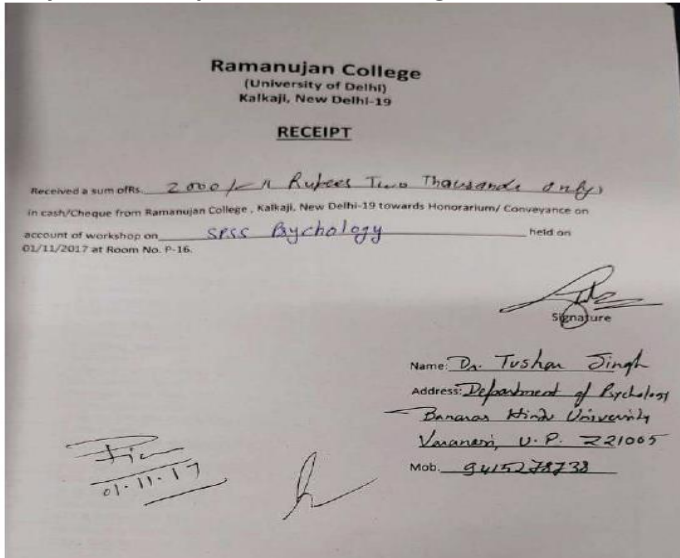 Ramanujan College
(University of Delhi)
Kalkaji, New Delhi-19
RECEIPT
Received a sum ofRs. 2000/- (Rupees Two Thousands only)
in cash/Cheque from Ramanujan College , Kalkaji, New Delhi-19 towards Honorarium/ Conveyance on
account of workshop on SPSS Psychology held on
01/11/2017 at Room No. P-16.
Signature
Name: Dr. Tushar Singh
Address: Department of Psychology
Banaras Hindu University
Varanasi, U.P. 221005
Mob. 9415278738
01.11.17